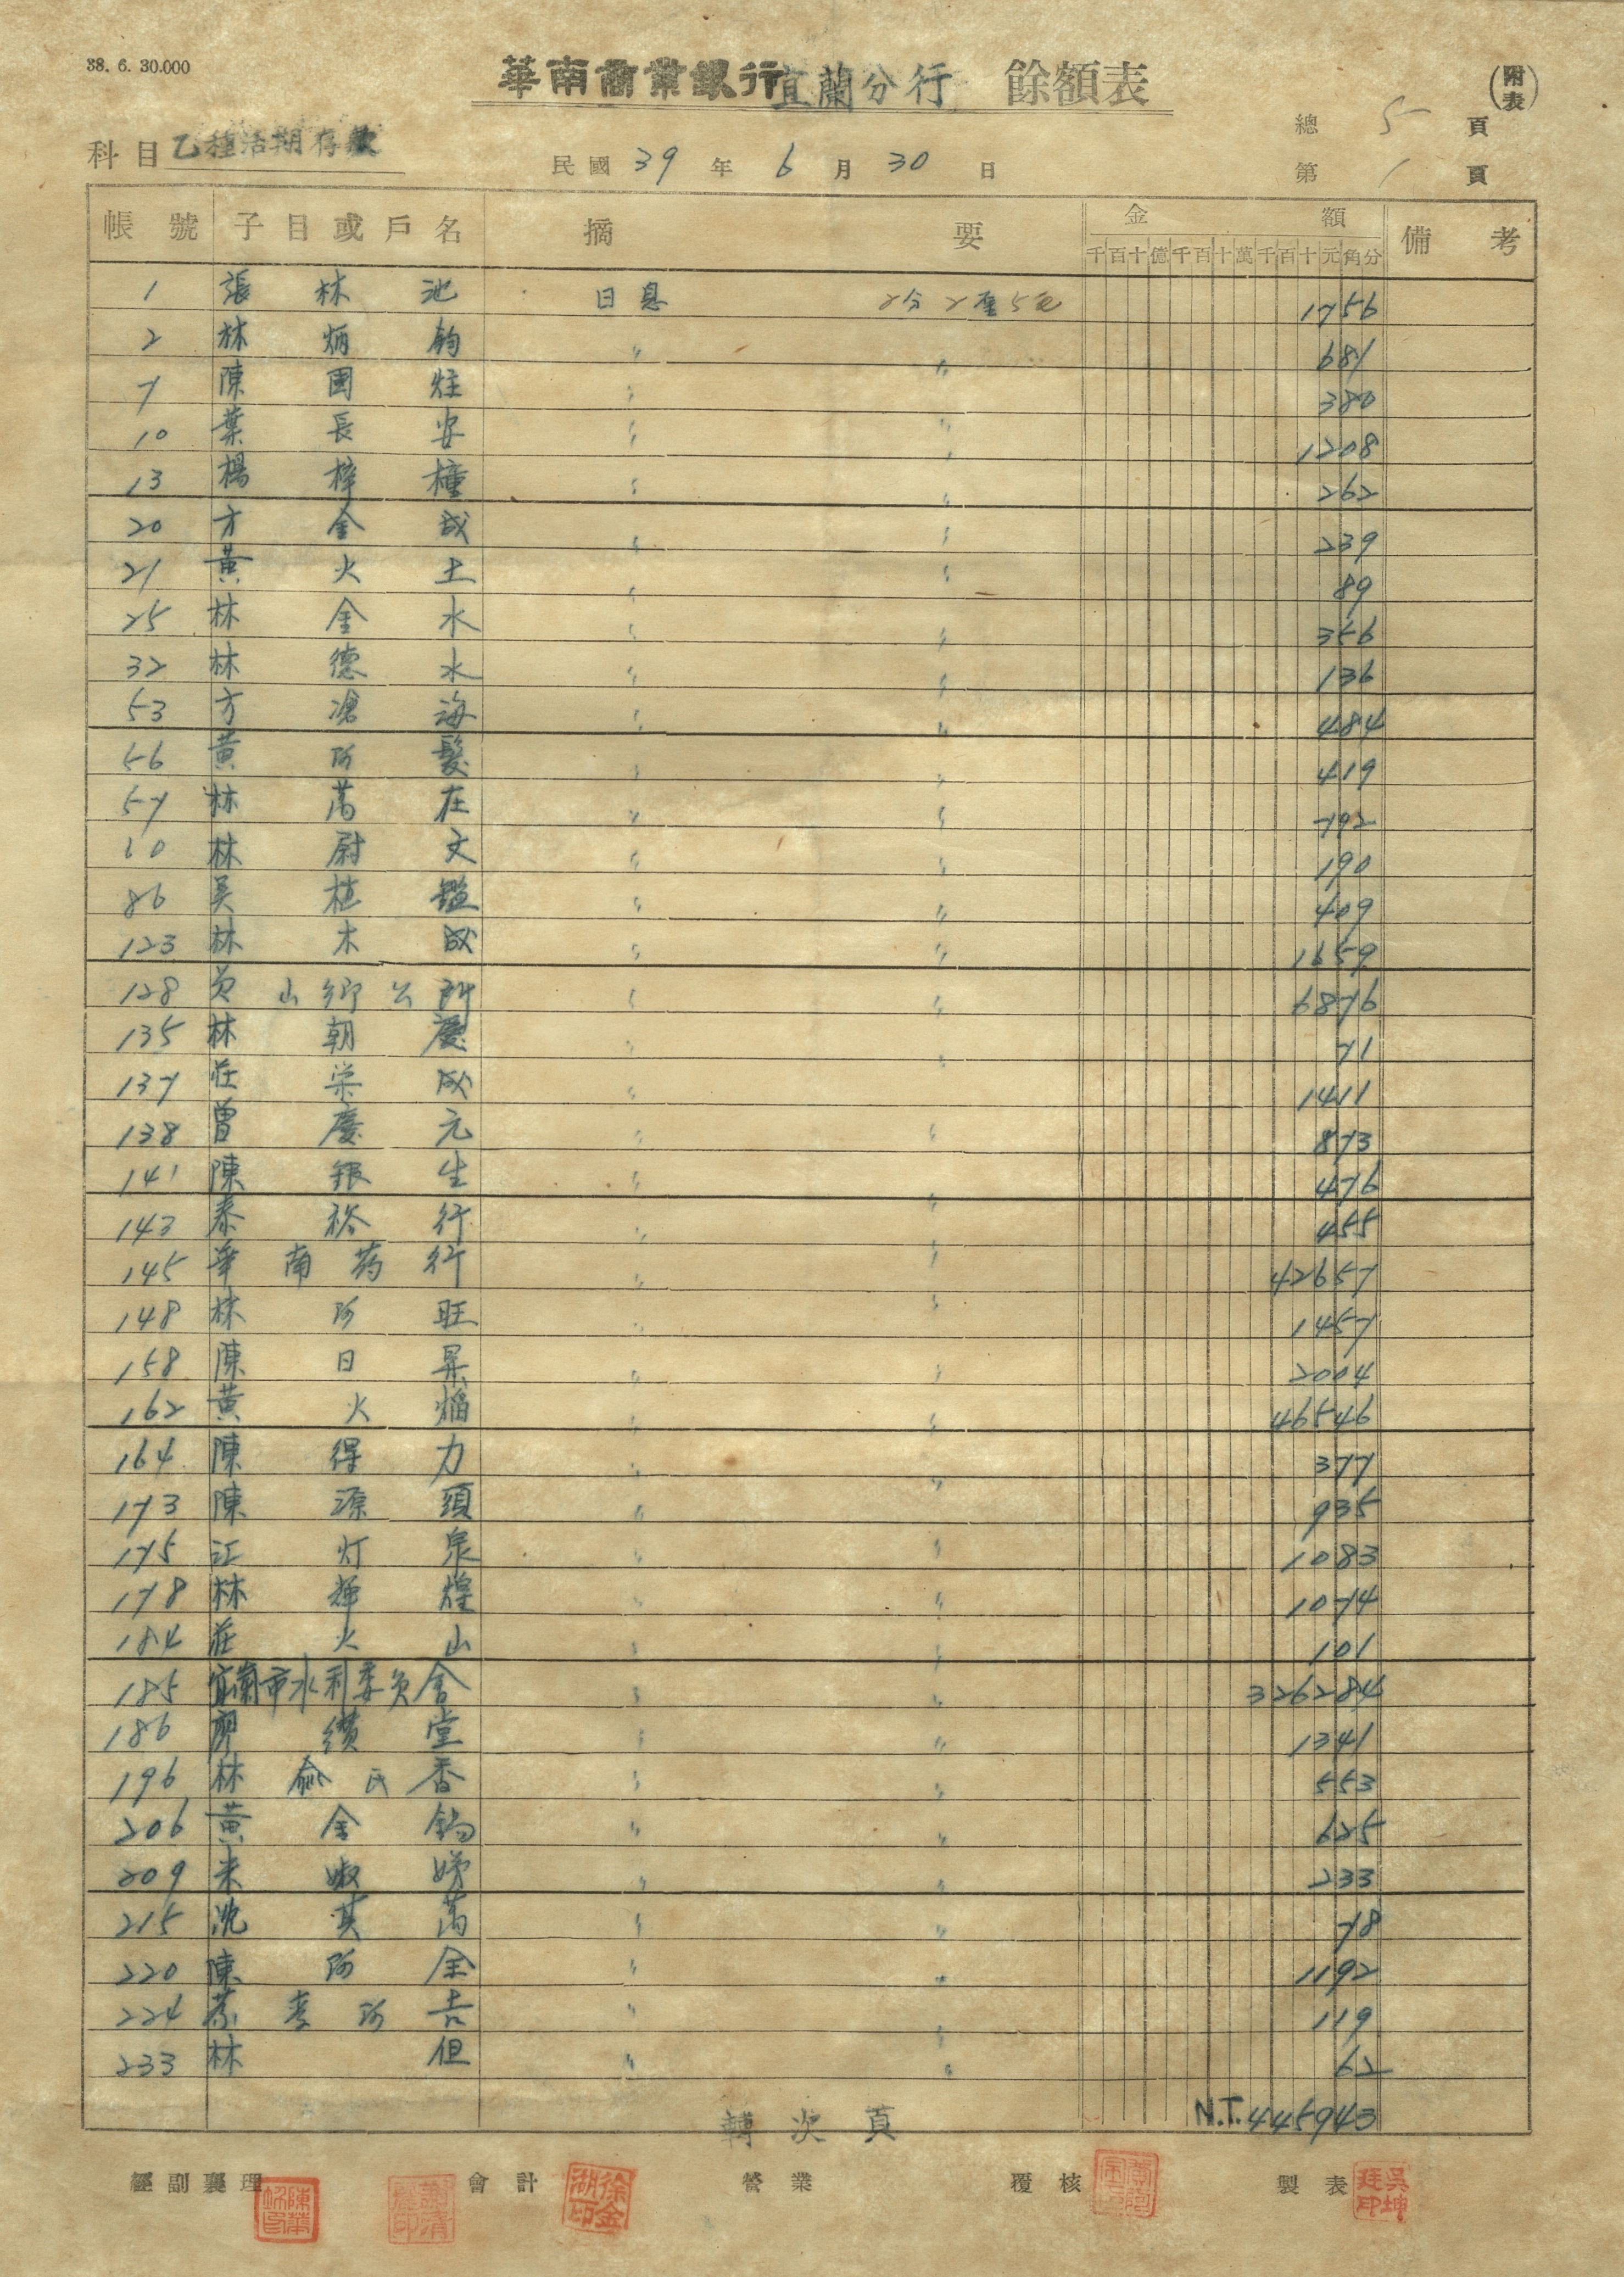 38. 6. 30.000
華南商業銀行宜蘭分行 餘額表
(附表)
總 5 頁
科目 乙種活期存款
民國 39 年 6 月 30 日
第 1 頁
帳號 子目或戶名 摘要 金額 備考
千百十億千百十萬千百十元角分
1 張林池 日息 2分2厘5毛 1756
2 林炳鈞 〃 〃 681
7 陳國炷 〃 〃 380
10 葉長安 〃 〃 1208
13 楊梓橦 〃 〃 262
20 方金成 〃 〃 239
21 黃火土 〃 〃 89
25 林金水 〃 〃 356
32 林德水 〃 〃 136
53 方滄海 〃 〃 484
56 黃阿髮 〃 〃 419
57 林萬在 〃 〃 792
60 林尉文 〃 〃 190
86 吳植鑑 〃 〃 409
123 林木成 〃 〃 1659
128 員山鄉公所 〃 〃 6876
135 林朝慶 〃 〃 71
137 莊榮成 〃 1411
138 曾慶元 〃 〃 873
141 陳銀生 〃 〃 476
143 泰裕行 〃 〃 455
145 華南葯行 〃 〃 42657
148 林阿旺 〃 〃 1457
158 陳日昇 〃 〃 2004
162 黃火焰 〃 〃 46546
164 陳得力 〃 〃 377
173 陳源頭 〃 〃 935
175 江灯泉 〃 〃 1083
178 林輝煌 〃 〃 1074
184 莊火山 〃 〃 101
185 宜蘭市水利委員會 〃 〃 326284
186 廖纘堂 〃 〃 1341
196 林俞氏香 〃 〃 553
206 黃金錫 〃 〃 625
209 朱淑娣 〃 〃 233
215 沈其萬 〃 〃 78
220 陳阿全 〃 〃 1192
224 蔡李阿吉 〃 〃 119
233 林但 〃 〃 62
轉次頁 N.T. 445943
經副襄理 會計 營業 覆核 製表
徐金湖印
吳坤拜印